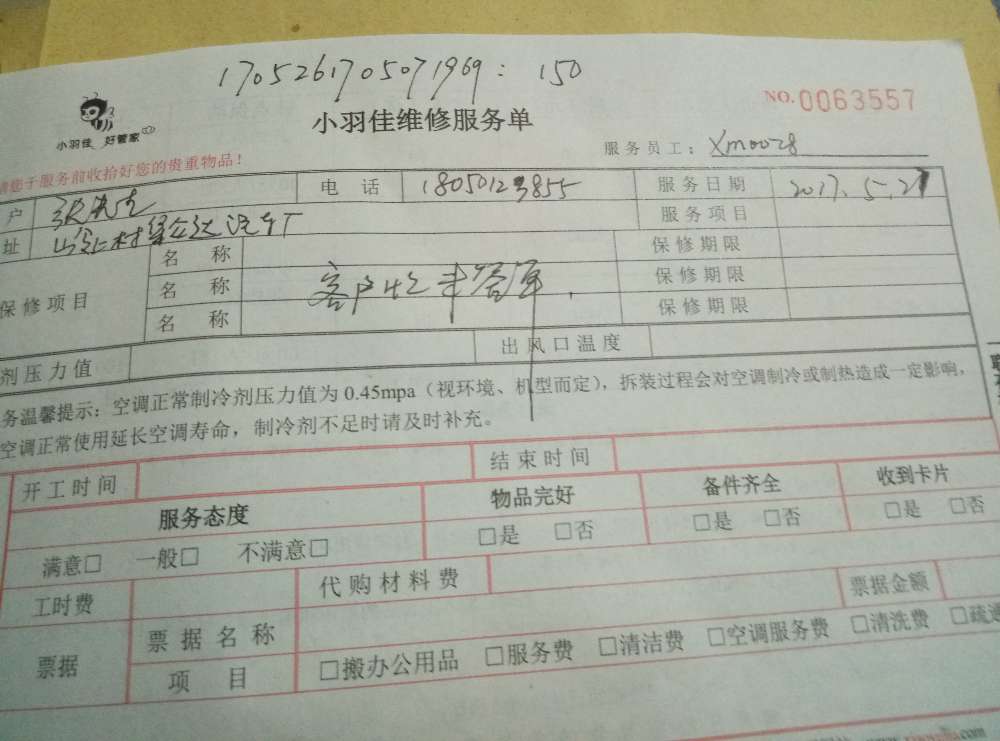 1705261705071969: 150
小羽佳 好管家
小羽佳维修服务单
NO.0063557
服务员工: Xm0028
请您于服务前收拾好您的贵重物品!
户 电 话 18050123855 服务日期 2017.5.27
址 服务项目
保修项目 名 称 保修期限
名 称 客户 保修期限
名 称 保修期限
剂压力值 出风口温度
务温馨提示:空调正常制冷剂压力值为0.45mpa(视环境、机型而定),拆装过程会对空调制冷或制热造成一定影响,
空调正常使用延长空调寿命,制冷剂不足时请及时补充。
开工时间 结束时间
服务态度 物品完好 备件齐全 收到卡片
满意□ 一般□ 不满意□ □是 □否 □是 □否 □是 □否
工时费 代购材料费 票据金额
票据 票据名称
项 目 □搬办公用品 □服务费 □清洁费 □空调服务费 □清洗费 □疏通